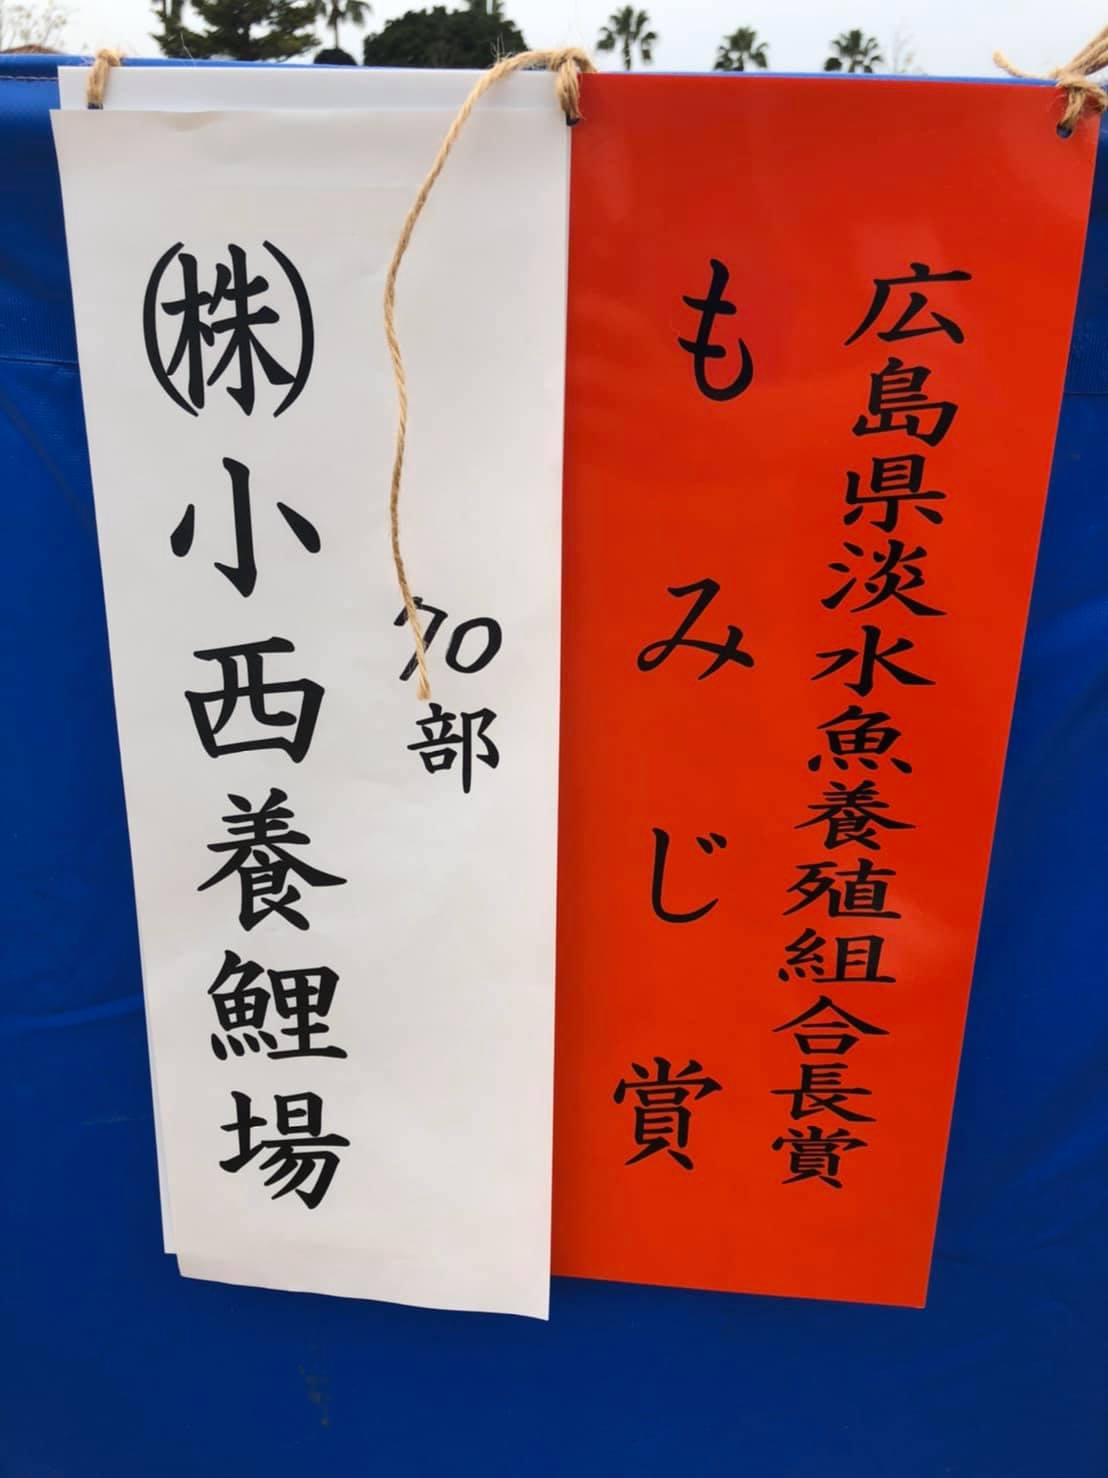 広島県淡水魚養殖組合長賞
もみじ賞
70部
㈱小西養鯉場